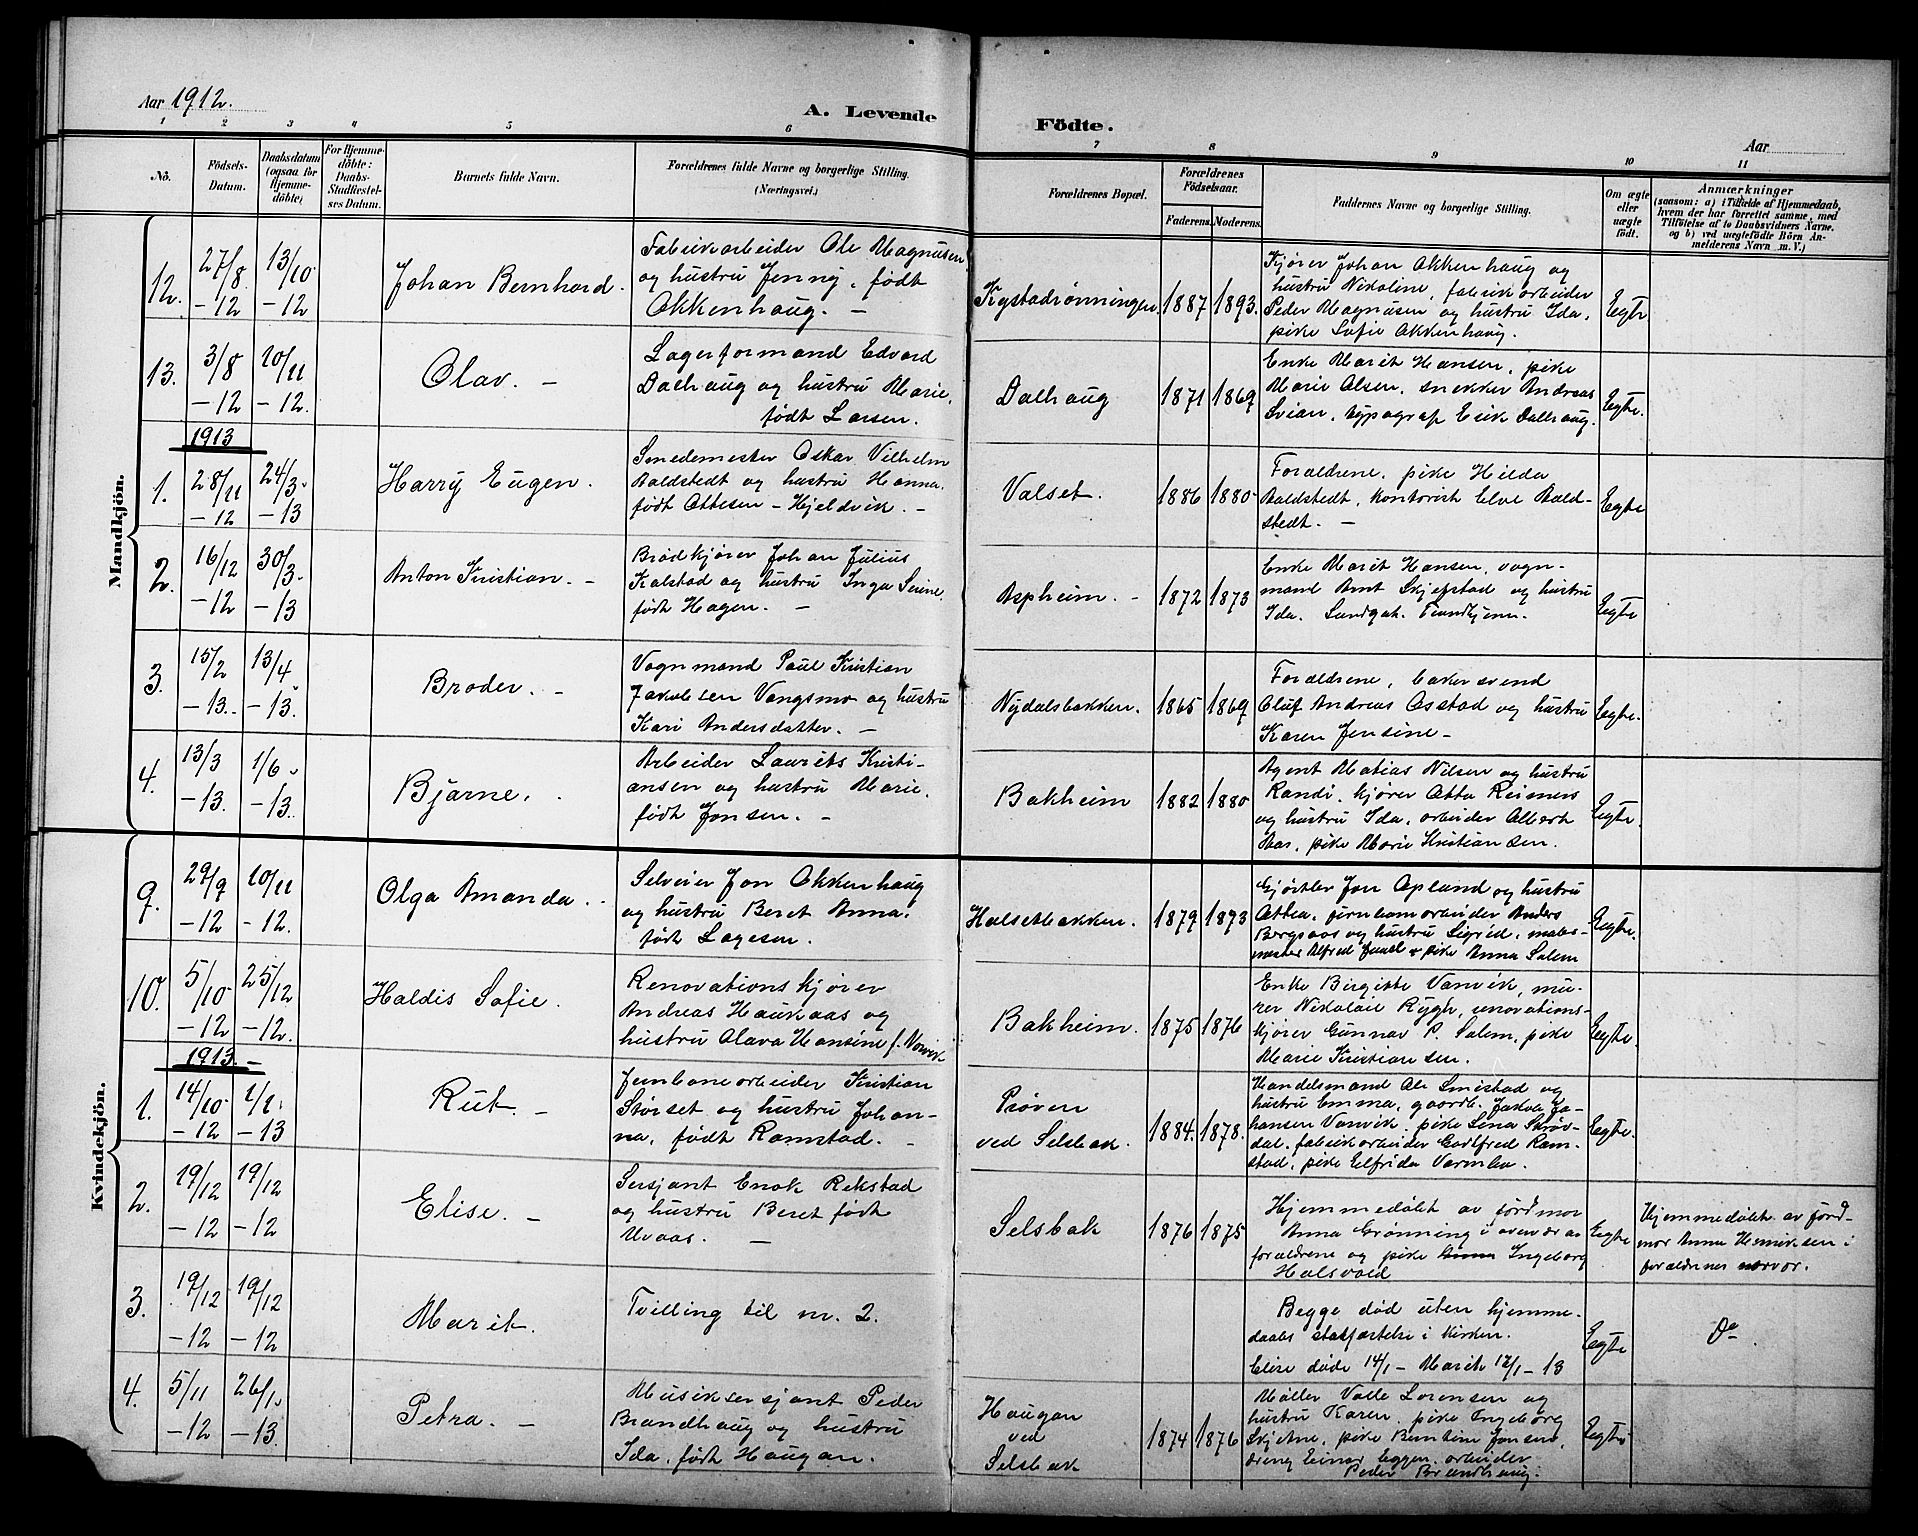 Aar 1912.
A. Levende
Födte.
Aar
1 2 3 4 5 6
7 8 9 10 11
Nö.
Födsels-
Datum.
Daabsdatum
(ogsaa for
Hjemme-
döbte)
For Hjemme-
döbte:
Daabs-
Stadfæstel-
ses Datum.
Barnets fulde Navn.
Forældrenes fulde Navne og borgerlige Stilling.
(Næringsvei.)
Forældrenes Bopæl.
Forældrenes
Födselsaar.
Faderens. Moderens.
Faddernes Navne og borgerlige Stilling.
Om ægte
eller
uægte
födt.
Anmærkninger
(saasom: a) i Tilfælde af Hjemmedaab,
hvem der har forrettet samme, med
Tilföielse af to Daabsvidners Navne.
og b) ved uægtefödte Börn An-
melderens Navn m. V.)
Mandkjön.
12. 27/8 -12 13/10 -12
Johan Bernhard.
Fabrikarbeider Ole Magnusen
og hustru Jenny, født
Okkenhaug. -
Kystadrønningen. 1887 1893.
Kjører Johan Okkenhaug og
hustru Nikoline, fabrikarbeider
Peder Magnusen og hustru Ida,
pike Sofie Okkenhaug.
Egte
13. 3/8 -12 10/11 -12.
Olav. -
Lagerformand Edvard
Dalhaug og hustru Marie,
født Larsen.
Dalhaug 1871 1869
Enke Marit Hansen, pike
Marie Olsen, snekker Andreas
Svian, typograf Erik Dalhaug.
Egte.
1913
1. 28/11 -12 24/3 -13
Harry Eugen.
Smedemester Oskar Vilhelm
Baldstedt og hustru Hanna,
født Ottesen - Hjeldvik. -
Valset. 1886 1880
Forældrene, pike Hilda
Baldstedt, kontorist Elve Bald-
stedt. -
Egte
2. 16/12 -12 30/3 -13
Anton Kristian. -
Brødkjører Johan Julius
Kalstad og hustru Inga Serine,
født Hagen. -
Aspheim. - 1872 1873
Enke Marit Hansen, vogn-
mand Arnt Skjefstad og hustru
Ida. Sandgat. Trondhjem.
Egte
3. 15/2 -13. 13/4 -13.
Broder. -
Vognmand Paul Kristian
Jakobsen Vangsmo og hustru
Kari Andersdatter. -
Nydalsbakken. 1865 1869
Forældrene, bakersvend
Oluf Andreas Osstad og hustru
Karen Jensine -
Egte.
4. 13/3 -13. 1/6 -13.
Bjarne.
Arbeider Laurits Kristi-
ansen og hustru Marie,
født Jonsen. -
Bakheim 1882 1880
Agent Matias Nilsen og hustru
Randi, kjører Otto Reimers
og hustru Ida, arbeider Albert
Aas, pike Marie Kristiansen.
Egte.
Kvindekjön.
9. 29/9 -12 10/11 -12.
Olga Amanda.
Selveier Jon Okkenhaug
og hustru Beret Anna,
født Lagesen.
Halsetbakken. 1879 1873
Gjørtler Jon Opland og hustru
Ottea, jernbanearbeider Anders
Bergsaas og hustru Sigrid, maler-
mester Alfred & pike Anna Salem
Egte.
10. 5/10 -12 25/12 -12.
Haldis Sofie.
Renovationskjører
Andreas Haukaas og
hustru Olava Hansine f. Vanvik
Bakheim. 1875 1876
Enke Birgitte Vanvik, mu-
rer Nikolaie Rygh, renovations-
kjører Gunnar P. Salem, pike
Marie Kristiansen.
Egte.
1913. -
1. 14/10 -12 1/1 -13
Rut -
Jernbanearbeider Kristian
Størset og hustru Johan-
na, født Ramstad. -
Prøven
ved Selsbak. 1884. 1878.
Handelsmand Ole Smistad og
hustru Emma, gaardb. Jakob Jo-
hansen Vanvik, pike Lina Strøv-
dal, fabrikarbeider Godtfred Ram-
stad, pike Elfrida Varmbo.
Egte.
2. 19/12 -12 19/12 -12
Elise. -
Sersjant Enok Rekstad
og hustru Beret født
Uvaas. -
Selsbak 1876 1875
Hjemmedøbt av jordmor
Anna Grønning i overvær av
forældrene og pike Ingeborg
Halsvold
Egte
Hjemmedøbt av jord-
mor Anna Henriksen i
forældrenes nærvær.
3. 19/12 -12 19/12 -12
Marit.
Tvilling til nr. 2.
Begge død uten hjemme-
daabs stadfæstelse i kirken.
Elise døde 14/1 - Marit 12/1 - 13
Egte
Do
4. 5/11 -12 26/1 -13.
Petra. -
Musiksersjant Peder
Brandhaug og hustru
Ida, født Haugan.
Haugan
ved
Selsbak 1874 1876
Møller Valle Lorensen og
hustru Karen, pike Ingeborg
Skjetne, pike Berntine Jonsen,
dreng Einar Eggen, arbeider
Peder Brandhaug.
Egte